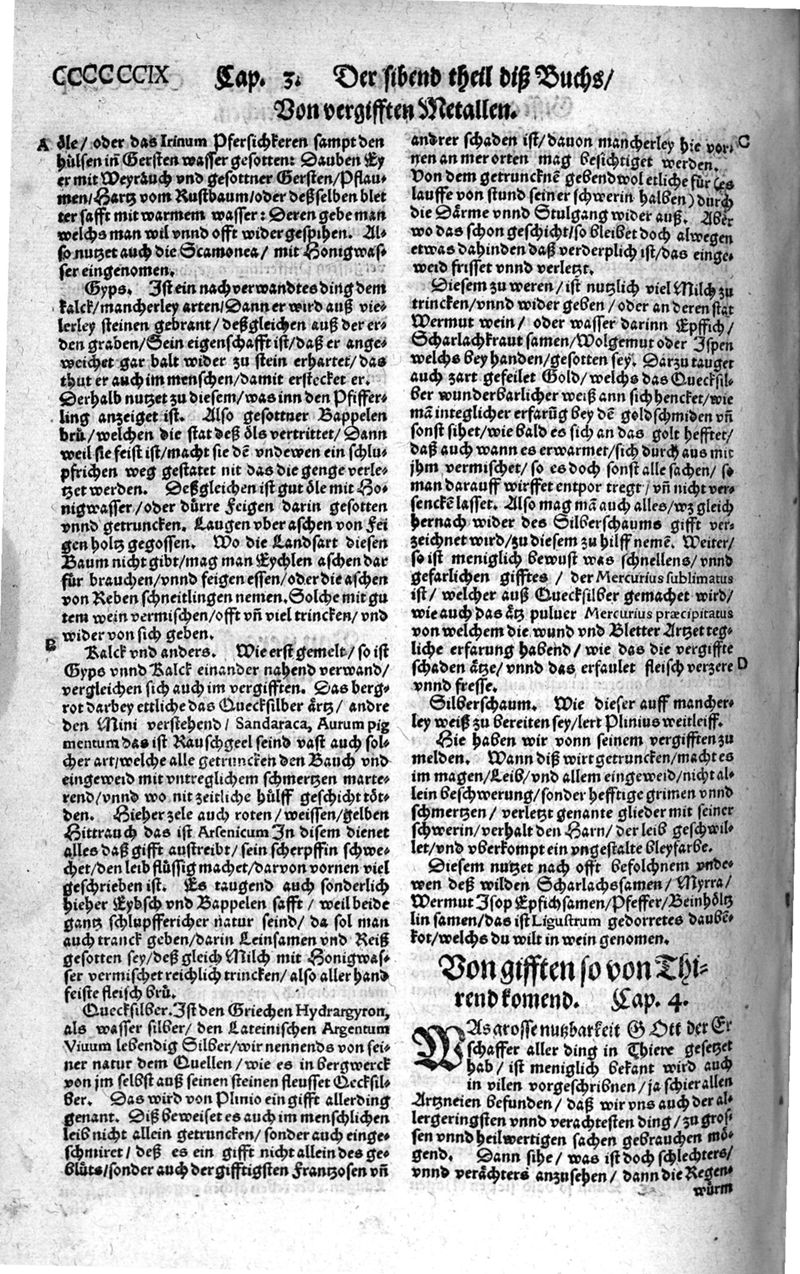 CCCCCCIX Cap. 3. Der sibend theil diß Buchs/
Von vergifften Metallen.
A öle/ oder das Irinum Pfersichkeren sampt den
hülsen inn̄ Gersten wasser gesotten: Dauben Ey
er mit Weyrauch vnd gesottner Gersten/ Pflau-
men/ Hartz vom Rustbaum/ oder deßselben blet
ter safft mit warmem wasser: Deren gebe man
welchs man wil vnnd offt wider gespihen. Al-
so nutzet auch die Scamonea/ mit Honigwas-
ser eingenomen.
Gyps. Ist ein nach verwandtes ding dem
kalck/ mancherley arten/ Dann er wird auß vie-
lerley steinen gebrant/ deßgleichen auß der er-
den graben/ Sein eigenschafft ist/ daß er ange-
weichet gar balt wider zu stein erhartet/ das
thut er auch im menschen/ damit erstecket er.
Derhalb nutzet zu diesem/ was inn den Pfiffer-
ling anzeiget ist. Also gesottner Bappelen
brü/ welchen die stat deß öls vertrittet/ Dann
weil sie feist ist/ macht sie dē vndewen ein schlu-
pfrichen weg gestatet nit das die genge verle-
tzet werden. Deßgleichen ist gut öle mit Ho-
nigwasser/ oder dürre Feigen darin gesotten
vnnd getruncken. Laugen vber aschen von Fei
gen holtz gegossen. Wo die Landsart diesen
Baum nicht gibt/ mag man Eychlen aschen dar
für brauchen/ vnnd feigen essen/ oder die aschen
von Reben schneitlingen nemen. Solche mit gu
tem wein vermischen/ offt vn̄ viel trincken/ vnd
wider von sich geben.
B Kalck vnd anders. Wie erst gemelt/ so ist
Gyps vnnd Kalck einander nahend verwand/
vergleichen sich auch im vergifften. Das berg-
rot darbey ettliche das Quecksilber ärtz/ andre
den Mini verstehend/ Sandaraca, Aurum pig
mentum das ist Rauschgeel seind vast auch sol-
cher art/ welche alle getruncken den Bauch vnd
eingeweid mit vntreglichem schmertzen marte-
rend/ vnnd wo nit zeitliche hülff geschicht töt-
den. Hieher zele auch roten/ weissen/ gelben
Hittrauch das ist Arsenicum In disem dienet
alles daß gifft austreibt/ sein scherpffin schwe-
chet/ den leib flüssig machet/ darvon vornen viel
geschrieben ist. Es taugend auch sonderlich
hieher Eybsch vnd Bappelen safft/ weil beide
gantz schlupffericher natur seind/ da sol man
auch tranck geben/ darin Leinsamen vnd Reiß
gesotten sey/ deß gleich Milch mit Honigwas-
ser vermischet reichlich trincken/ also aller hand
feiste fleisch brü.
Quecksilber. Ist den Griechen Hydrargyron,
als wasser silber/ den Lateinischen Argentum
Vivum lebendig Silber/ wir nennends von sei-
ner natur dem Quellen/ wie es in bergwerck
von jm selbst auß seinen steinen fleusset Qecksil-
ber. Das wird von Plinio ein gifft allerding
genant. Diß beweiset es auch im menschlichen
leib nicht allein getruncken/ sonder auch einge-
schmiret/ deß es ein gifft nicht allein des ge-
blüts/ sonder auch der gifftigsten Frantzosen vn̄
andrer schaden ist/ dauon mancherley hie vor- C
nen an mer orten mag besichtiget werden.
Von dem getruncknē gebend wol etliche für (es
lauffe von stund seiner schwerin halben) durch
die Därme vnnd Stulgang wider auß. Aber
wo das schon geschicht/ so bleibet doch alwegen
etwas dahinden daß verderplich ist/ das einge-
weid frisset vnnd verletzt.
Diesem zu weren/ ist nutzlich viel Milch zu
trincken/ vnnd wider geben/ oder an deren stat
Wermut wein/ oder wasser darinn Epffich/
Scharlachkraut samen/ Wolgemut oder Ispen
welchs bey handen/ gesotten sey. Darzu tauget
auch zart gefeilet Gold/ welchs das Quecksil-
ber wunderbarlicher weiß ann sich hencket/ wie
mā integlicher erfarūg bey dē goldschmiden vn̄
sonst sihet/ wie bald es sich an das golt hefftet/
daß auch wann es erwarmet/ sich durch aus mit
jhm vermischet/ so es doch sonst alle sachen/ so
man darauff wirffet entpor tregt/ vn̄ nicht ver-
senckē lasset. Also mag mā auch alles/ wz gleich
hernach wider des Silberschaums gifft ver-
zeichnet wird/ zu diesem zu hilff nemē. Weiter/
so ist meniglich bewust was schnellens/ vnnd
gefarlichen gifftes/ der Mercurius sublimatus
ist/ welcher auß Quecksilber gemachet wird/
wie auch das ätz puluer Mercurius præcipitatus
von welchem die wund vnd Bletter Artzet teg-
liche erfarung habend/ wie das die vergiffte
schaden ätze/ vnnd das erfaulet fleisch verzere D
vnnd fresse.
Silberschaum. Wie dieser auff mancher-
ley weiß zu bereiten sey/ lert Plinius weitleiff.
Hie haben wir vonn seinem vergifften zu
melden. Wann diß wirt getruncken/ macht es
im magen/ Leib/ vnd allem eingeweid/ nicht al-
lein beschwerung/ sonder hefftige grimen vnnd
schmertzen/ verletzt genante glieder mit seiner
schwerin/ verhalt den Harn/ der leib geschwil-
let/ vnd vberkompt ein vngestalte bleyfarbe.
Diesem nutzet nach offt befolchnem vnde-
wen deß wilden Scharlachsamen/ Myrra/
Wermut Isop Epfichsamen/ Pfeffer/ Beinhöltz
lin samen/ das ist Ligustrum gedorretes daubē-
kot/ welchs du wilt in wein genomen.
Von gifften so von Thi-
rend komend. Cap. 4.
WAs grosse nutzbarkeit GOtt der Er
schaffer aller ding in Thiere gesetzet
hab/ ist meniglich bekant wird auch
in vilen vorgeschribnen/ ja schier allen
Artzneien befunden/ daß wir vns auch der al-
lergeringsten vnnd verachtesten ding/ zu gros-
sen vnnd heilwertigen sachen gebrauchen mö-
gend. Dann sihe/ was ist doch schlechters/
vnnd verächters anzusehen/ dann die Regen-
würm